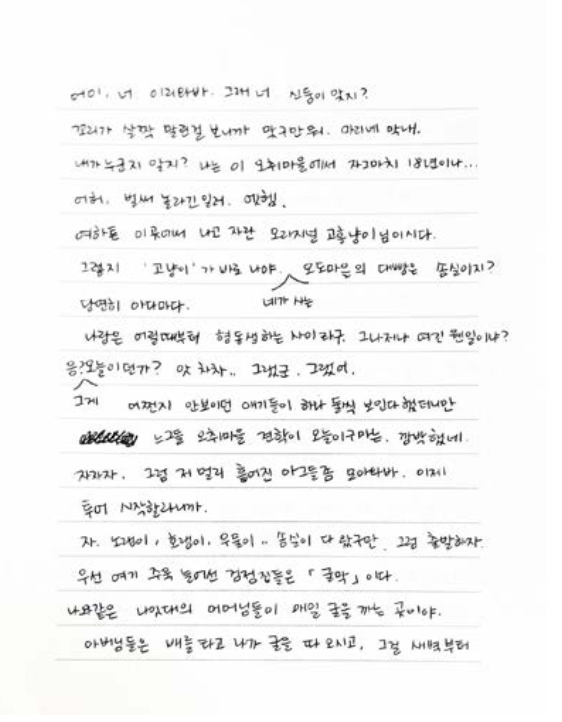 어이, 너 이리와바. 그래 너 신둥이 맞지?
꼬리가 살짝 말린걸 보니까 맞구만 뭐. 마리네 막내.
내가 누군지 알지? 나는 이 오취마을에서 자그마치 18년이나...
어허, 벌써 놀라긴 일러. 에헴,
여하튼 이곳에서 나고 자란 오리지널 고흥냥이님이시다.
그렇지 '고냥이'가 바로 나야. 네가 사는 오도마을의 대빵은 송실이지?
당연히 아다마다.
나랑은 어릴때부터 형동생하는 사이라구. 그나저나 여긴 웬일이냐?
응? 그게 오늘이던가? 앗 차차.. 그랬군. 그랬어.
어쩐지 안보이던 애기들이 하나 둘씩 보인다 했더니만
느그들 오취마을 견학이 오늘이구마는. 깜박했네.
자자자. 그럼 저 멀리 흩어진 아그들좀 모아와바. 이제
투어 시작할라니까.
자. 노랭이, 호랭이, 우물이.. 송실이 다 왔구만. 그럼 출발하자.
우선 여기 주욱 늘어선 검정집들은 「굴막」이다.
나와같은 나잇대의 어머님들이 매일 굴을 까는 곳이야.
아버님들은 배를 타고 나가 굴을 따 오시고, 그걸 새벽부터